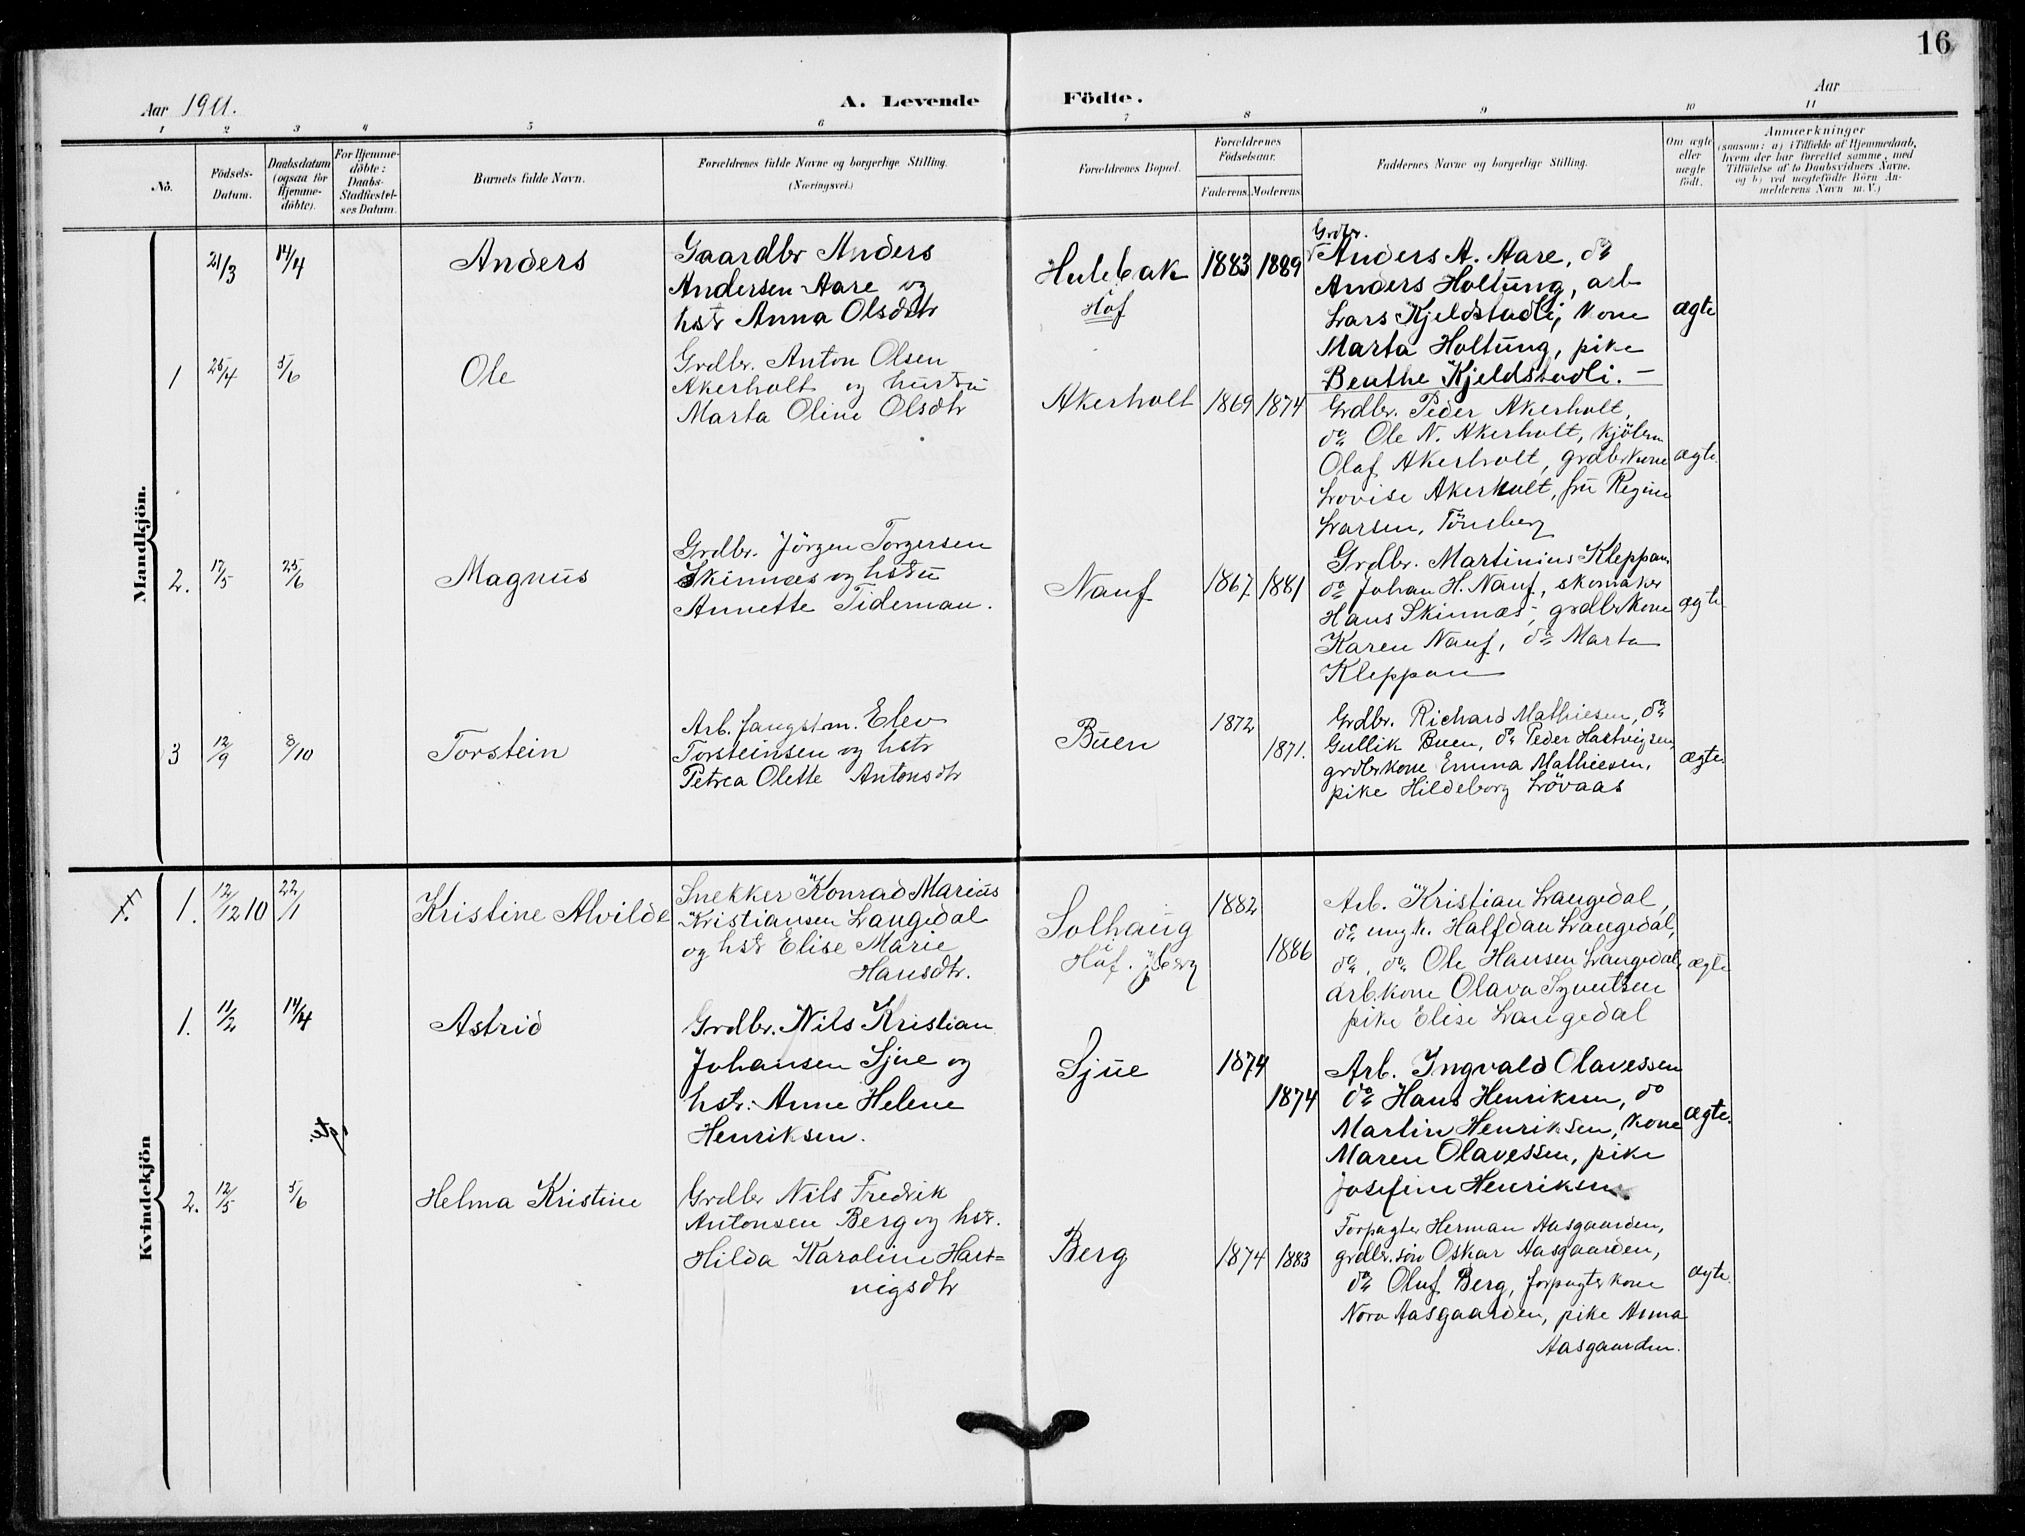 16
Aar 1911.
A. Levende Födte.
Aar
1 2 3 4 5 6 7 8 9 10 11
No.
Födsels-Datum.
Daabsdatum (ogsaa for Hjemme-döbte).
For Hjemme-döbte: Daabs-Stadfæstel-ses Datum.
Barnets fulde Navn.
Forældrenes fulde Navne og borgerlige Stilling.
(Næringsvei.)
Forældrenes Bopæl.
Forældrenes Födselsaar.
Faderens. Moderens.
Faddernes Navne og borgerlige Stilling.
Om ægte eller uægte födt.
Anmærkninger
(saasom: a) i Tilfælde af Hjemmedaab,
hvem der har forrettet samme, med
Tilföielse af to Daabsvidners Navne.
og b) ved uægtefödte Börn An-
melderens Navn m. V.)
Mandkjön.
21/3 14/4 Anders
Gaardbr Anders
Andersen Aare og
hstr Anna Olsdtr
Hulebak
i
Hof
1883 1889
Grdbr.
Anders A. Aare, do
Anders Holtung, arb
Lars Kjeldstadli, kone
Marta Holtung, pike
Beathe Kjeldstadli. –
ægte
1 25/4 5/6 Ole
Grdbr. Anton Olsen
Akerholt og hustru
Marta Oline Olsdtr
Akerholt 1869 1874
Grdbr. Peder Akerholt,
do Ole N. Akerholt, kjölem
Olaf Akerholt, grdbrkone
Lovise Akerholt, fru Regine
Larsen, Tönsberg
ægte.
2. 17/5 25/6 Magnus
Grdbr. Jörgen Torgersen
Skinnæs og hstru
Annette Tideman.
Nauf 1867. 1881
Grdbr. Martinius Kleppan
do Johan H. Nauf, skomaker
Hans Skinnæs, grdbrkone
Karen Nauf, do Marta
Kleppan
ægte
3 12/9 8/10 Torstein
Arb. fangstm. Elev
Torsteinsen og hstr
Petrea Olette Antonsdtr
Buen 1872 1871.
Grdbr. Richard Mathiesen, do
Gullik Buen, do Peder Hartvigsen,
grdbrkone Emma Mathiesen,
pike Hildeborg Lövaas
ægte.
Kvindekjön
1. 12/12 10 22/1 Kristine Alvilde
Snekker Konrad Marius
Kristiansen Langedal
og hstr Elise Marie
Hansdtr.
Solhaug
i
Hof
1882 1886
Arb. Kristian Langedal,
do ungk. Halfdan Langedal,
do, do Ole Hansen Langedal,
arb.kone Olava Syvertsen
pike Elise Langedal
ægte
1. 11/2 14/4 Astrid
Grdbr. Nils Kristian
Johansen Sjue og
hstr. Anne Helene
Henriksen.
Sjue 1874 1874
Arb. Ingvald Olavessen
do Hans Henriksen, do
Martin Henriksen, kone
Maren Olavessen, pike
Josefine Henriksen.
ægte.
2. 12/5 5/6 Helma Kristine
Grdbr Nils Fredrik
Antonsen Berg og hstr.
Hilda Karoline Hart=
vigsdtr
Berg 1874 1883
Forpagter Herman Aasgaarden,
grdbr. sön Oskar Aasgaarden,
do Oluf Berg, forpagterkone
Nora Aasgaarden, pike Anna
Aasgaarden.
ægte.